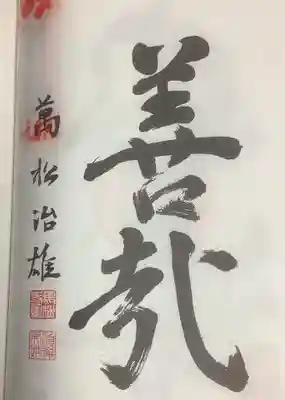 善哉
萬松治雄